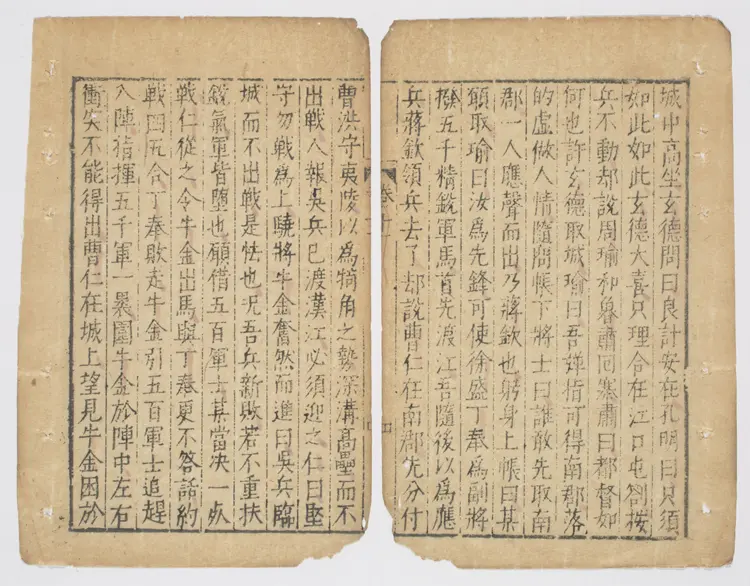 城中高坐玄德問曰良計安在孔明曰只須
如此如此玄德大喜只理會在江口屯劄按
兵不動却說周瑜和魯肅回寨肅曰都督如
何也許玄德取城瑜曰吾彈指可得南郡落
的虛做人情隨問帳下將士曰誰敢先取南
郡一人應聲而出乃蔣欽也躬身上帳曰某
願取瑜曰汝為先鋒可使徐盛丁奉為副將
撥五千精銳軍馬首先渡江吾隨後以為應
兵蔣欽領兵去了却說曹仁在南郡先分付
卷十
曹洪守夷陵以為犄角之勢深溝高壘而不
出戰人報吳兵已渡漢江必須迎之仁曰堅
守勿戰為上驍將牛金奮然而進曰吳兵臨
城而不出戰是怯也况吾兵新敗若不重扶
銳氣軍皆墮也願借五百軍士某當决一死
戰仁從之令牛金出馬與丁奉更不答話約
戰四五合丁奉敗走牛金引五百軍士追趕
入陣指揮五千軍一裹圍牛金於陣中左右
衝突不能得出曹仁在城上望見牛金困於